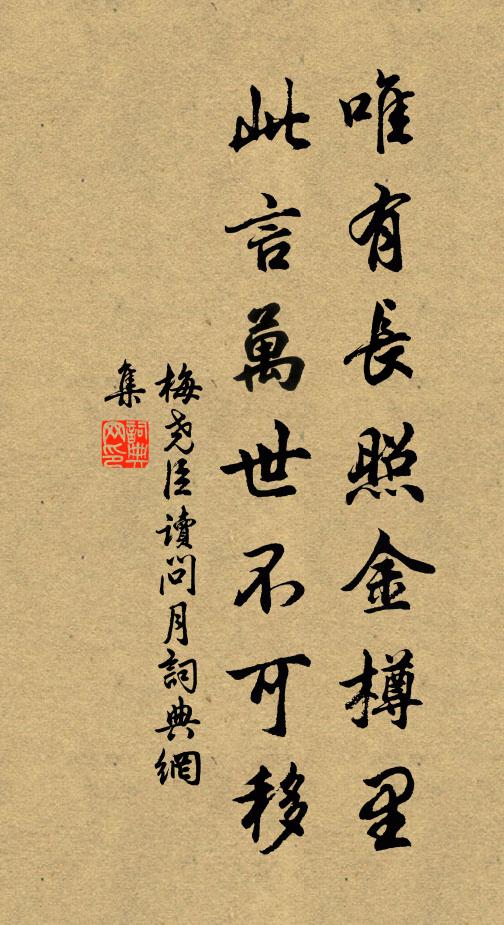 唯有長照金樽里
此言萬世不可移
梅堯臣讀問月詞典網
集
詞典
网印